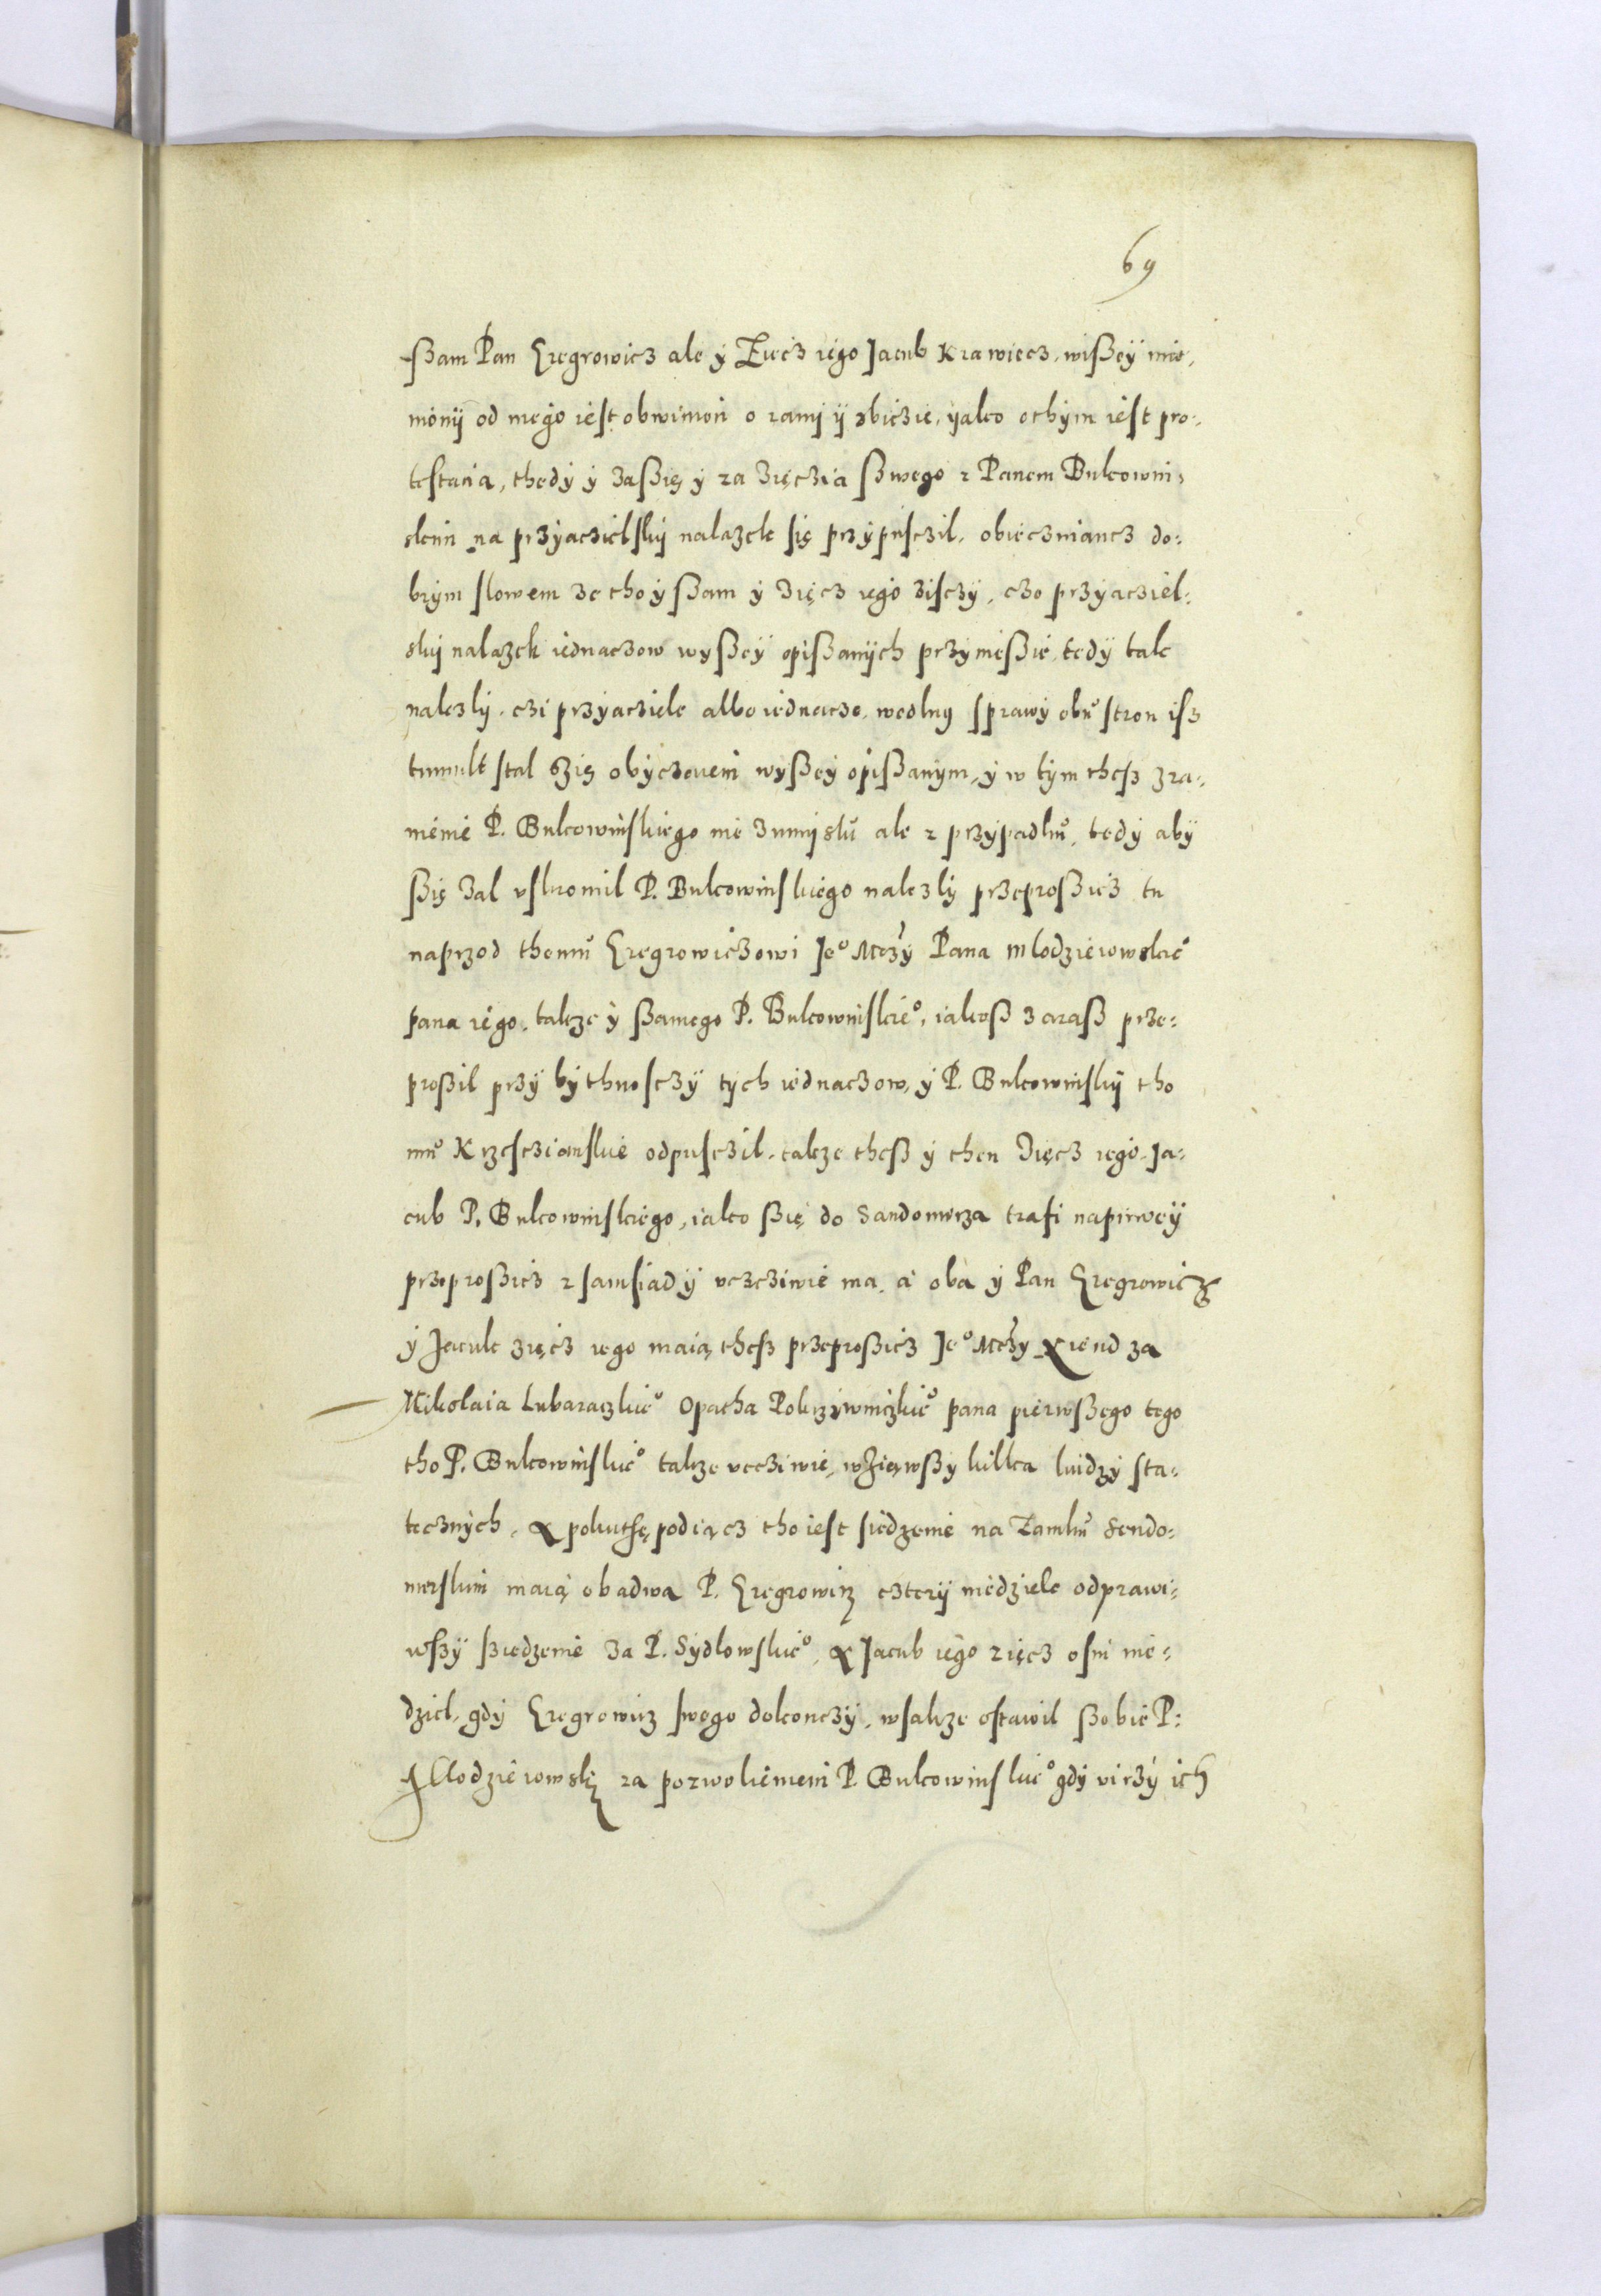 69
ßam Pan Gregrowicz ale ÿ Ziecz iego Jacub Krawiecz, wißeÿ mie,
nionÿ od niego iest obwinion o ranÿ ÿ zbiczie, ÿako othÿm iest pro:
testacia, thedÿ ÿ zaßię ÿ za zięczia ßwego z Panem Bukowin,
skim na przÿaczielskÿ nalazek się przÿpusczil, obieczuiancz do:
brÿm slowem ze tho ÿ ßam ÿ zięcz iego zisczÿ, czo przÿacziel:
skÿ nalazek iednaczow wÿßeÿ opißanÿch przÿnießie, tedÿ tak
nalezlÿ, czi przÿacziele albo iednacze, wedlug sprawÿ obu stron isz
tumult stal ßię obÿczaiem wÿßeÿ opißanÿm, ÿ w tÿm thesz zra,
nienie P. Bukowinskiego nie z umÿslu ale z przÿpadku, tedÿ abÿ
ßię zal uskromil P. Bukowinskiego nalezlÿ przeproßicz tu
naprzod themu Gregrowiczowi Je° Mczÿ Pana Mlodzieiowskie°
pana iego, takze ÿ ßamego P. Bukowinskie°, iakoß zaraß prze:
proßil przÿ bÿthnosczÿ tÿch iednaczow, ÿ P. Bukowinskÿ tho
mu Krzesczianskie odpusczil, takze theß ÿ then zięcz iego Ja:
cub P. Bukowinskiego, iako ßię do Sandomirza trafi napirweÿ
przeproßicz z samsiadÿ uczcziwie ma, a oba ÿ Pan Gregrowicz
ÿ Jacub zięcz iego maią thesz przeproßicz Je° Mczÿ Xiendza
Mikolaia Lubaraczkie° Opatha Pokrziwniczkie° pana pierwßego tego
tho P. Bukowinskie° takze ucziwie, wziąwßÿ kilka ludzÿ sta,
tecznÿch, A pokuthę podiącz tho iest siedzenie na Zamku Sendo:
mirskim maią obadwa P. Gregrowicz czterÿ niedziele odprawi:
wßÿ ßiedzenie za P. Sÿdlowskie°, A Jacub iego zięcz osm nie:
dziel, gdÿ Gregrowicz swego dokonczÿ, wsakze ostawil ßobie P:
Mlodzieiowskÿ za pozwoleniem P. Bukowinskie° gdÿ uirzÿ ich